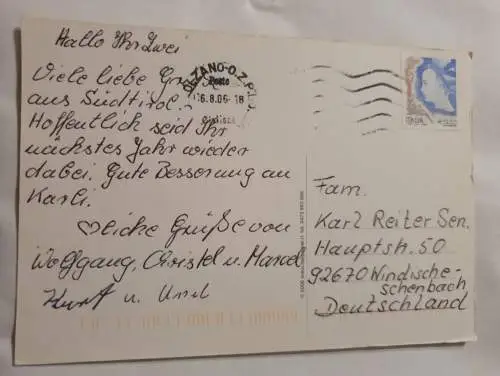 Hallo Ihr Zwei
Viele liebe Grüße
aus Südtirol.
Hoffentlich seid Ihr
nächstes Jahr wieder
dabei. Gute Besserung an
Karli.
♡liche Grüße von
Wolfgang, Christel u. Marcel
Horst u. Ursel
BOLZANO-O.Z.P.I.
Poste
16.8.06-18
Italiane
ITALIA
Fam.
Karl Reiter Sen.
Hauptstr. 50
92670 Windische-
schenbach
Deutschland